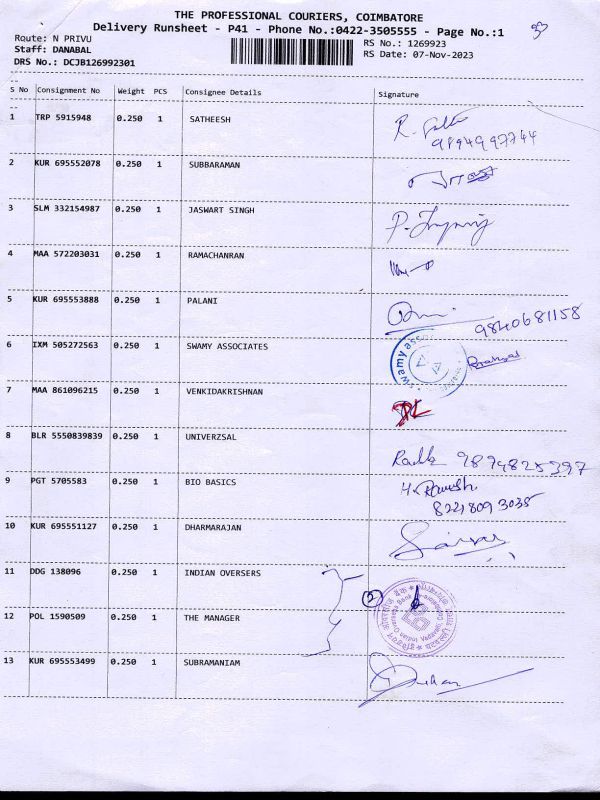 THE PROFESSIONAL COURIERS, COIMBATORE
Delivery Runsheet - P41 - Phone No.:0422-3505555 - Page No.:1
Route: N PRIVU
RS No.: 1269923
Staff: DANABAL
RS Date: 07-Nov-2023
DRS No.: DCJB126992301
S No Consignment No Weight PCS Consignee Details Signature
1 TRP 5915948 0.250 1 SATHEESH
9894997744
2 KUR 695552078 0.250 1 SUBBARAMAN
3 SLM 332154987 0.250 1 JASWART SINGH
4 MAA 572203031 0.250 1 RAMACHANRAN
5 KUR 695553888 0.250 1 PALANI
9840681158
6 IXM 505272563 0.250 1 SWAMY ASSOCIATES
swamy
7 MAA 861096215 0.250 1 VENKIDAKRISHNAN
8 BLR 5550839839 0.250 1 UNIVERZSAL
9894825397
9 PGT 5705583 0.250 1 BIO BASICS
H. Ramesh
8221809 3035
10 KUR 695551127 0.250 1 DHARMARAJAN
11 DDG 138096 0.250 1 INDIAN OVERSERS
2
12 POL 1590509 0.250 1 THE MANAGER
13 KUR 695553499 0.250 1 SUBRAMANIAM